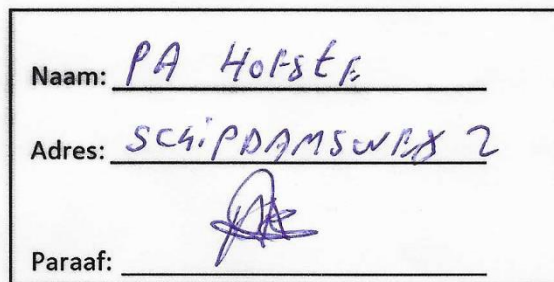 Naam: PA HOFSTE
Adres: SCHIPDAMSWEG 2
Paraaf: